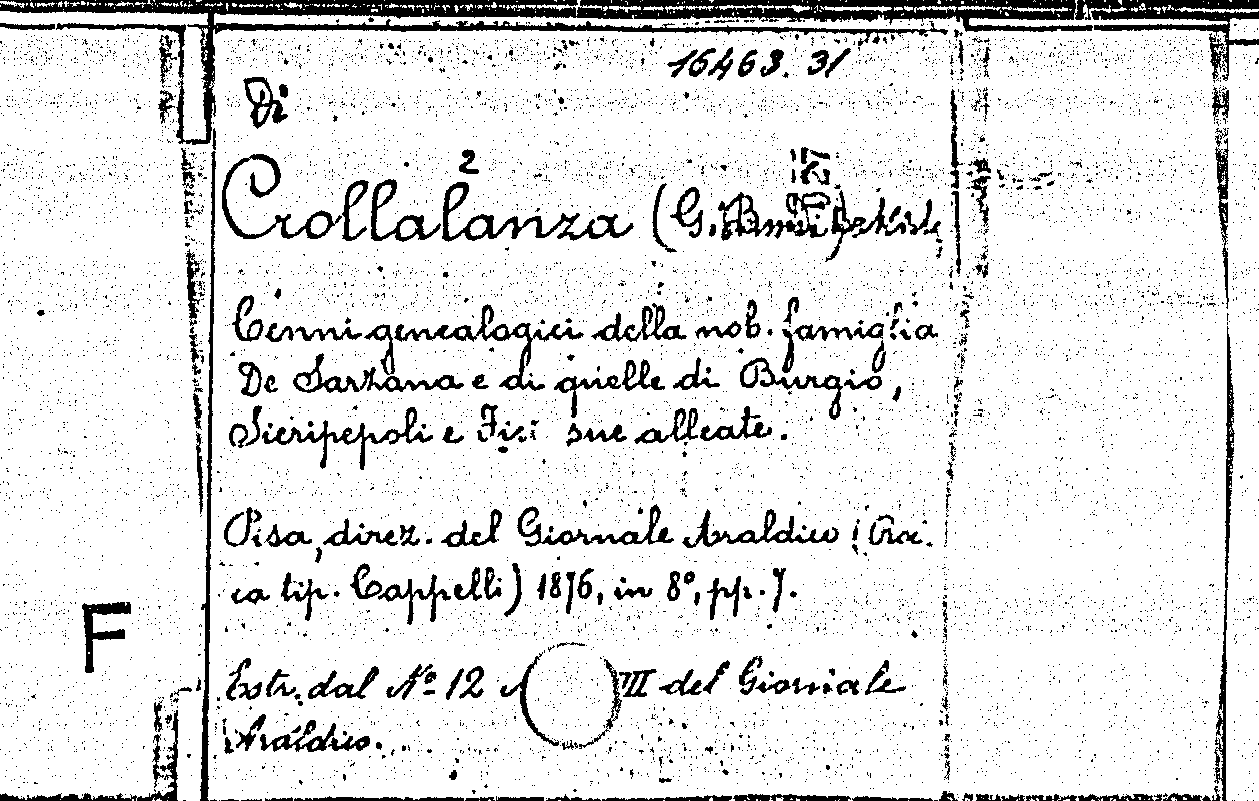 16463. 31
Di
2
Crollalanza (G.
Cenni genealogici della nob. famiglia
De Sarzana e di quelle di Burgio,
Sieripepoli e Fici sue alleate.
Pisa, direz. del Giornale Araldico (Roc.
ca tip. Cappelli) 1876, in 8°, pp. 7.
F
Estr. dal Nº 12 III del Giornale
Araldico.